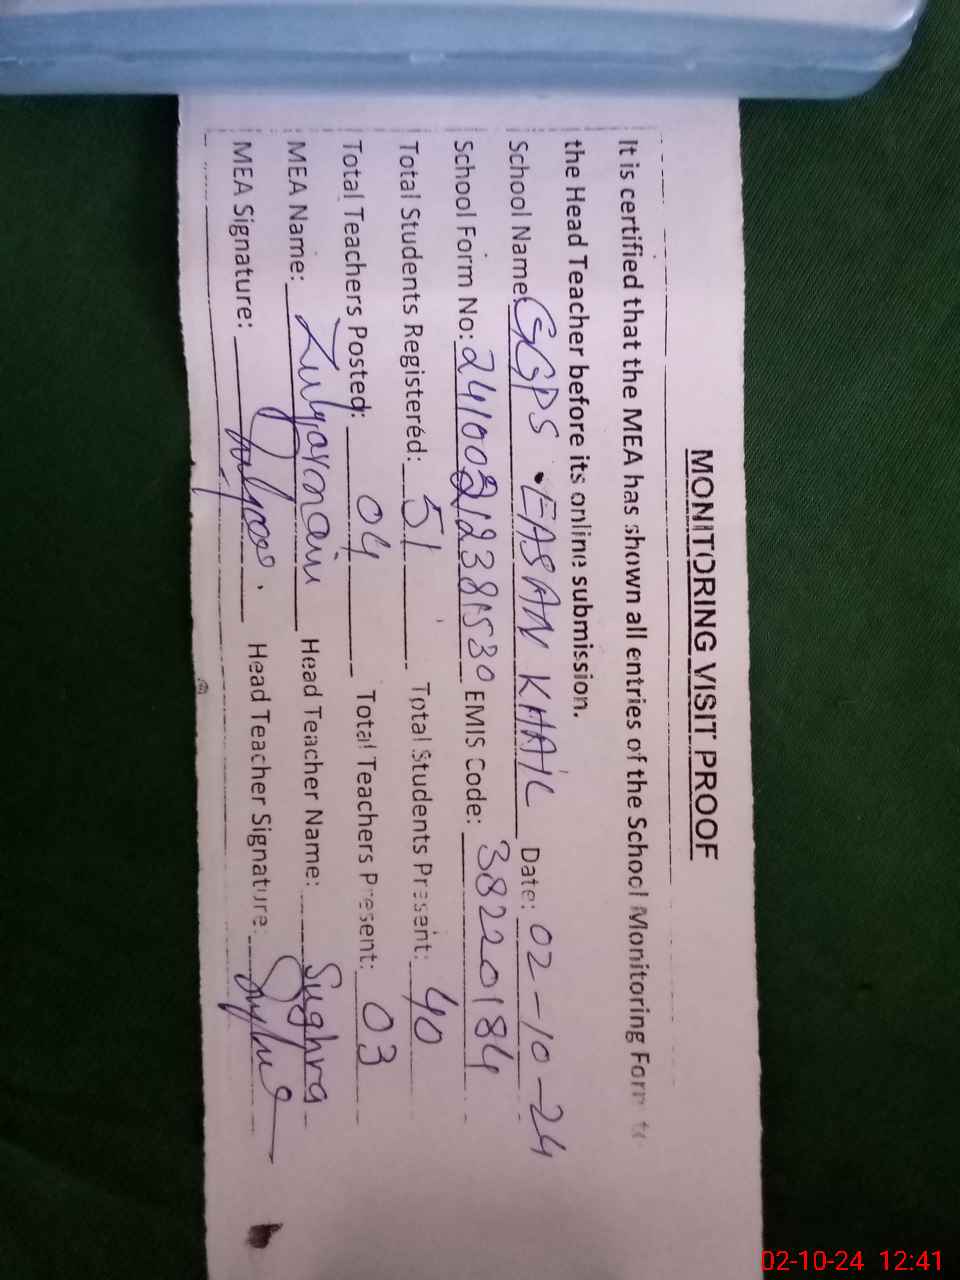 MONITORING VISIT PROOF
It is certified that the MEA has shown all entries of the School Monitoring Form to
the Head Teacher before its online submission.
School Name: GGPS EASAN KHAIL Date: 02-10-24
School Form No: EMIS Code: 38220184
Total Students Registered: 51 Total Students Present: 40
Total Teachers Posted: 04 Total Teachers Present: 03
MEA Name: Zulqarnain Head Teacher Name: Sughra
MEA Signature: Head Teacher Signature:
02-10-24 12:41